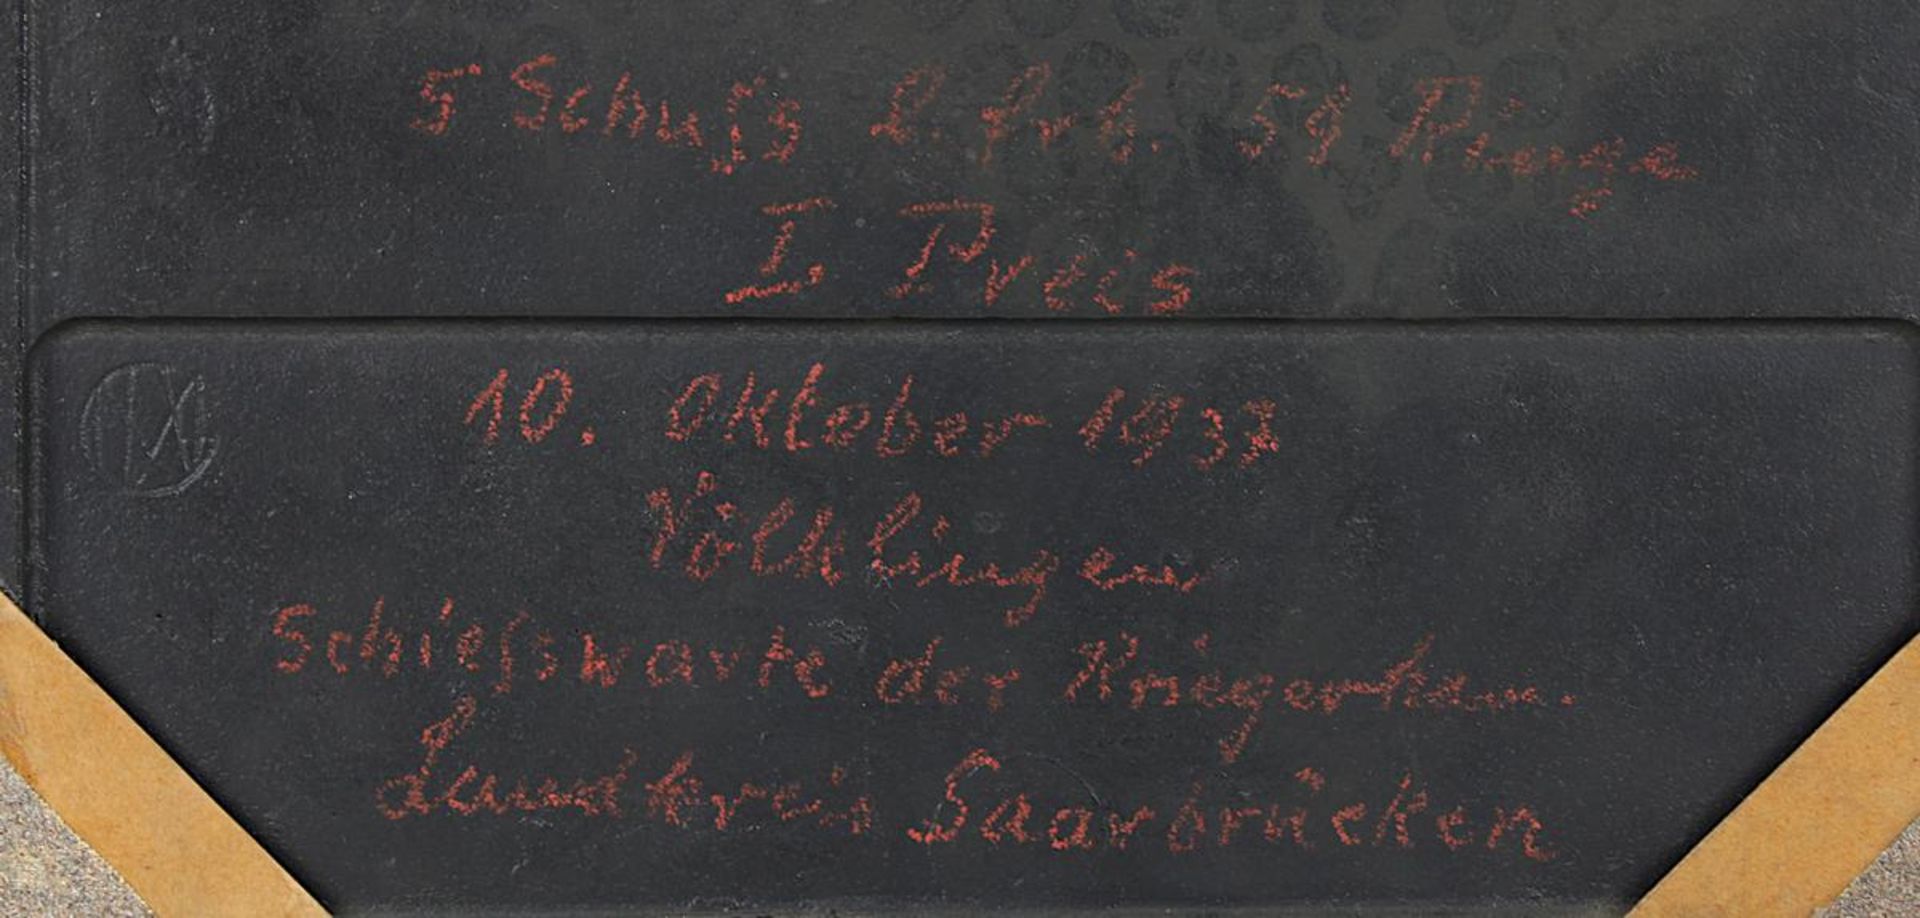 5 Schuß l. frh. 58 Ringe
I. Preis
10. Oktober 1937
Völklingen
Schießwarte der Kriegerkam.
Landkreis Saarbrücken